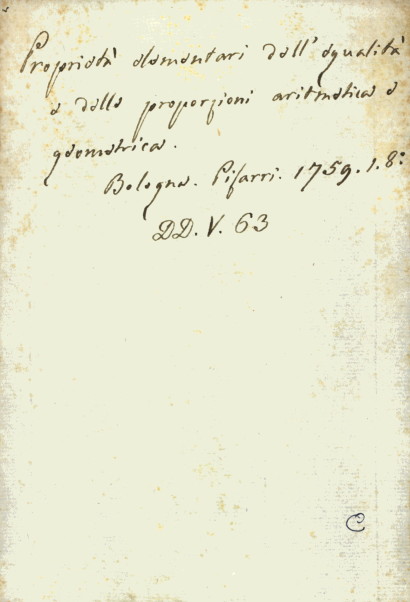 Proprietà elementari dell'egualità
e delle proporzioni aritmetica e
geometrica.
Bologna. Pisarri. 1759. 1. 8:
DD. V. 63
C